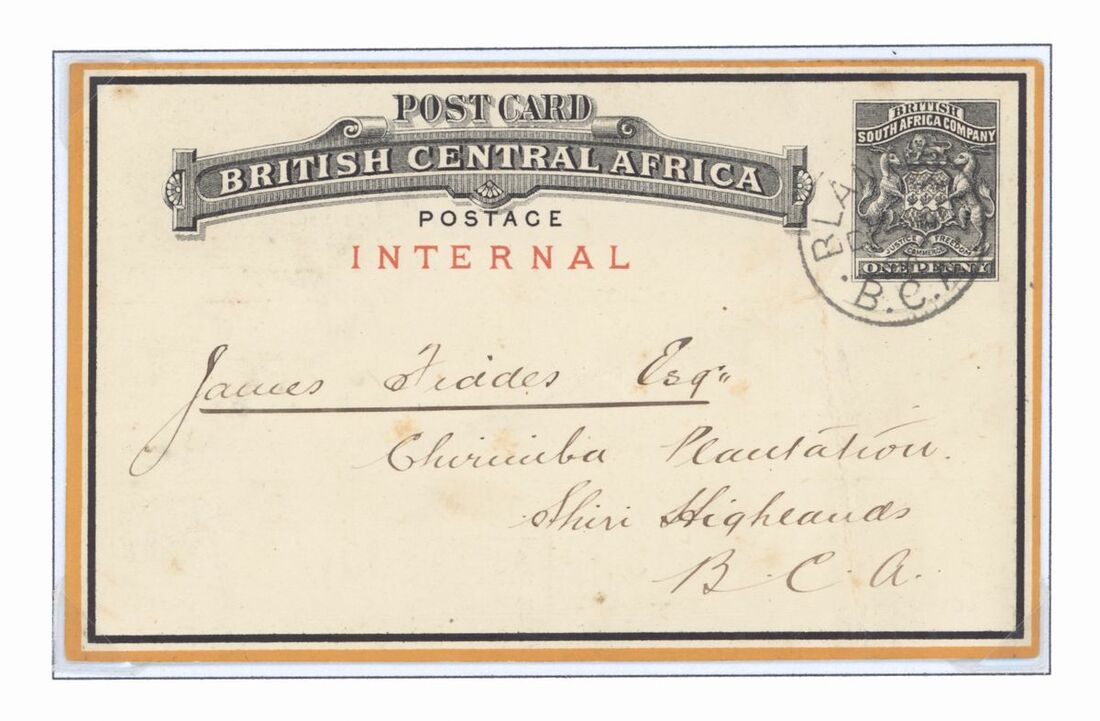 POST CARD
BRITISH CENTRAL AFRICA
POSTAGE
INTERNAL
BRITISH
SOUTH AFRICA COMPANY
JUSTICE FREEDOM
COMMERCE
ONE PENNY
B.C.A.
James Fiddes Esqr"
Chirimba Plantation.
Shiri Highlands
B. C. A.